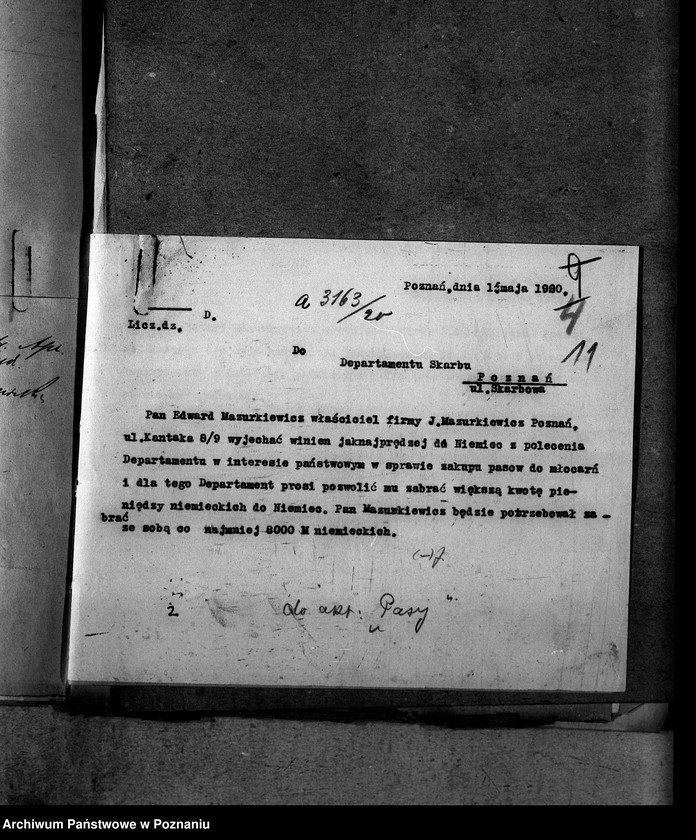 Poznań,dnia 15maja 1920.
a 3163/20
D.
Licz.dz.
4
11
Do
Departamentu Skarbu
P o z n a ń
ul.Skarbowa
Pan Edward Mazurkiewicz właściciel firmy J.Mazurkiewicz Poznań,
ul.Kantaka 8/9 wyjechać winien jaknajprędzej do Niemiec z polecenia
Departamentu w interesie państwowym w sprawie zakupu pasow do młocarń
i dla tego Departament prosi pozwolić mu zabrać większą kwotę pie-
niędzy niemieckich do Niemiec. Pan Mazurkiewicz będzie potrzebował za -
brać
ze sobą co najmniej 8000 M niemieckich.
(-)J.
2
do akt: "Pasy"
Archiwum Państwowe w Poznaniu